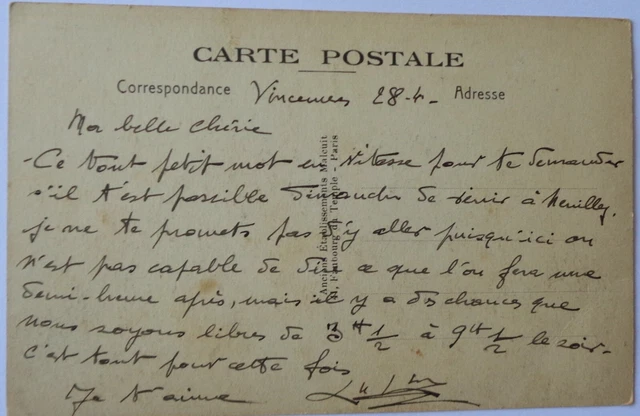 CARTE POSTALE
Correspondance Vincennes 28-4- Adresse
Ma belle Chérie
-Ce tout petit mot en vitesse pour te demander
s'il t'est possible dimanche de venir à Neuilly.
je ne te promets pas d'y aller puisqu'ici on
n'est pas capable de dire ce que l'on fera une
demi-heure après, mais il y a des chances que
nous soyons libres de 3H 1/2 à 9H 1/2 le soir-
c'est tout pour cette fois
Je t'aime
Anciens Etablissements Malcuit
Faubourg du Temple - Paris